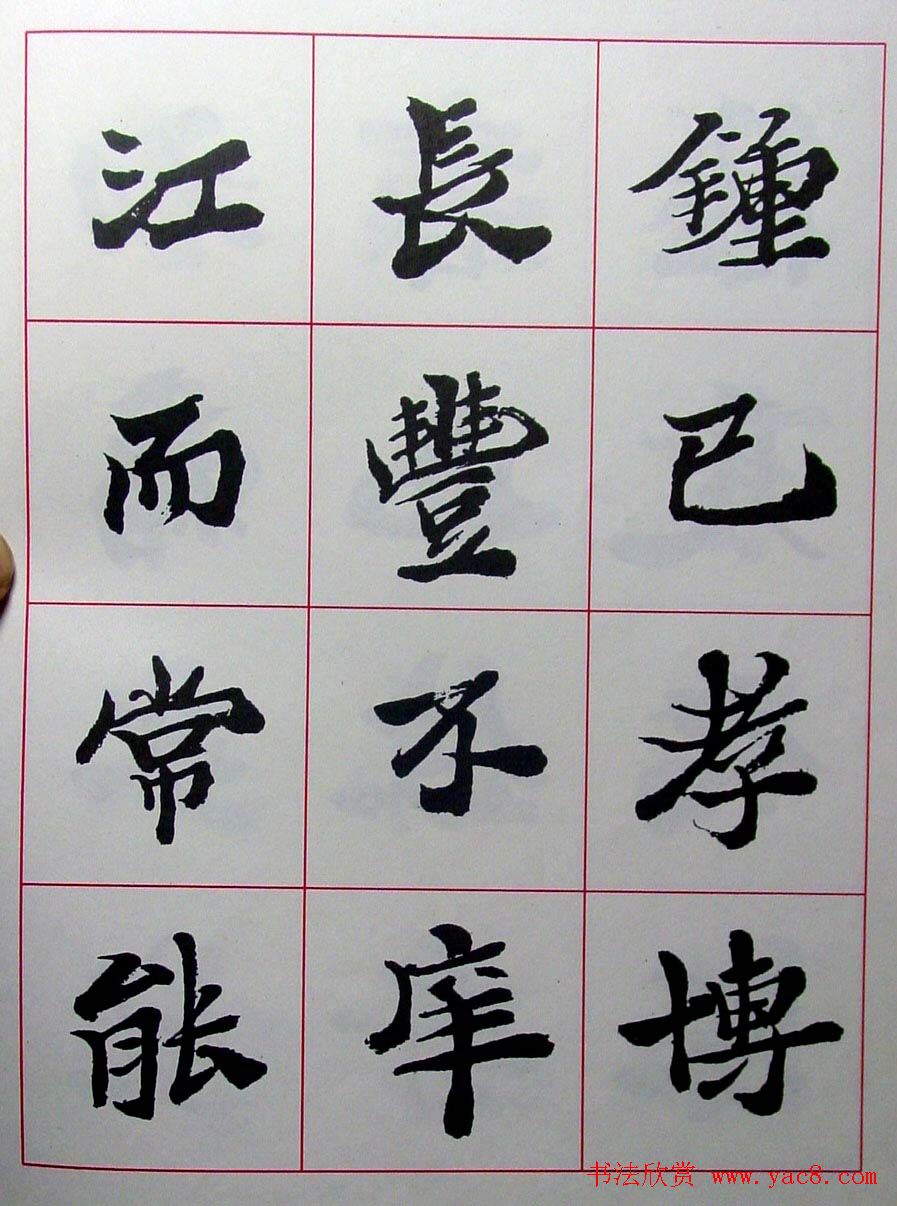 鍾已孝博
長豐不
江而常能
书法欣赏 www.yac8.com